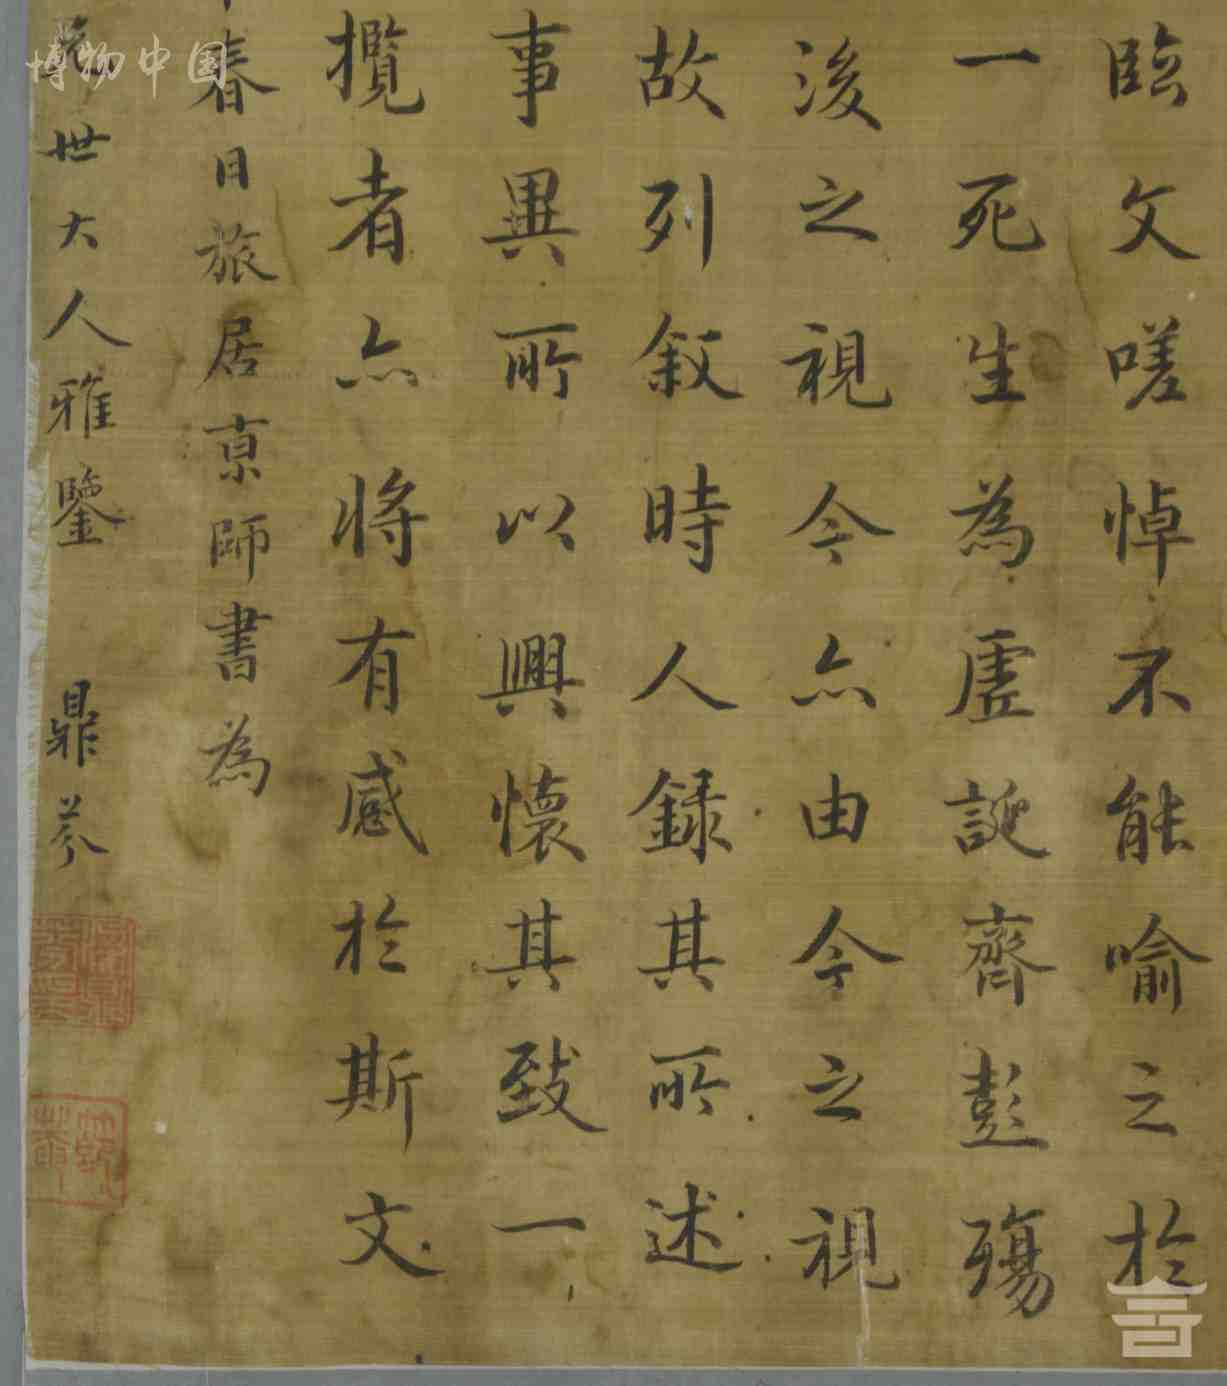 臨文嗟悼不能喻之於
一死生為虛誕齊彭殤
後之視今亦由今之視
故列敘時人錄其所述
事異所以興懷其致一
攬者亦將有感於斯文
春日旅居京師書為
世大人雅鑒 鼎芬
博物中国